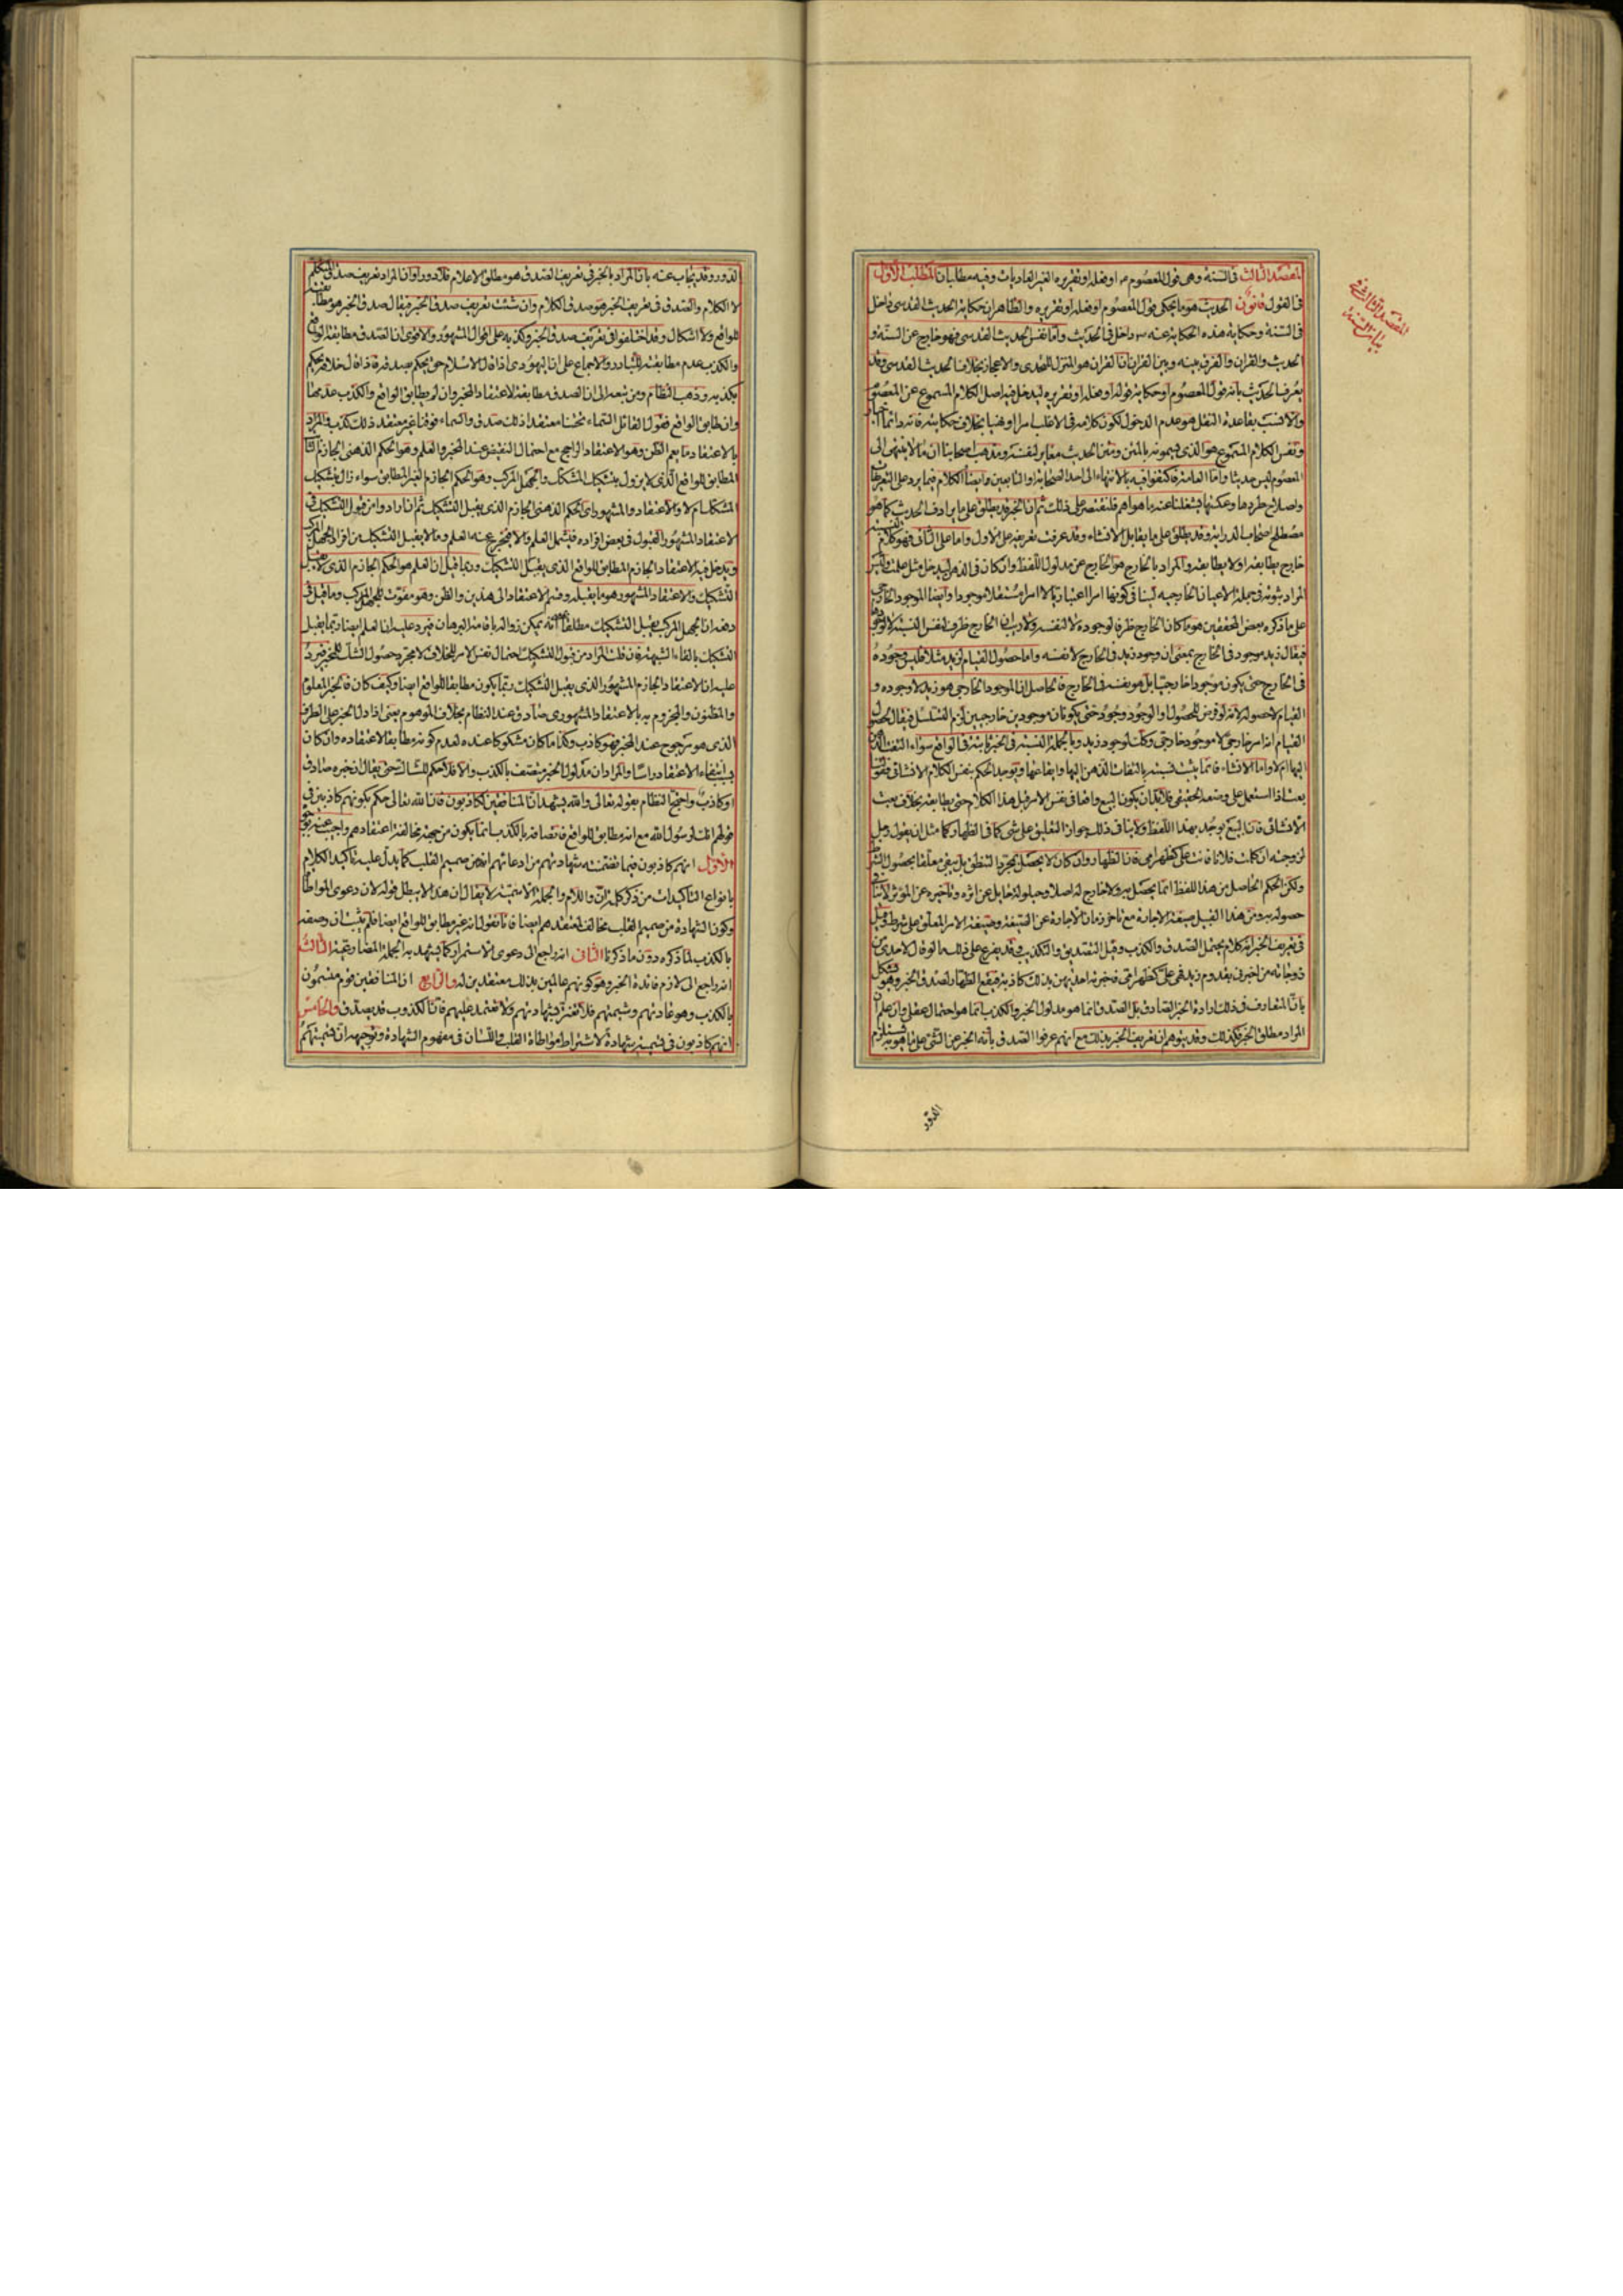 المقصد الثالث في السنة وهي قول المعصوم او فعله او تقريره الغير العاديات وفيه مطلبان المطلب الاول
في القول قانون الحديث هو ما يحكى قول المعصوم او فعله او تقريره والظاهر ان حكاية الحديث القدسي داخل
في السنة وحكاية هذه الحكاية عنه داخل في الحديث واما نفس الحديث القدسي فهو خارج عن السنة و
الحديث والقران والفرق بينه وبين القران ان القران هو المنزل للتحدى والاعجاز بخلاف الحديث القدسي وقد
يعرف الحديث بانه قول المعصوم او حكاية قوله او فعله او تقريره ليدخل فيه اصل الكلام المسموع عن المعصوم
والانسب بقاعدة النقل هو عدم الدخول لكون كلامه في الاغلب امرا او نهيا بخلاف حكايته فانه دائما اخبار
ونفس الكلام المسموع هو الذى يسمونه بالمتن ومتن الحديث مغاير لنفسه ومذهب اصحابنا ان ما لا ينتهى الى
المعصوم ليس حديثا واما العامة فاكتفوا فيه بالانتهاء الى احد الصحابة او التابعين وايضا الكلام فيما يرد على التعريفات
واصلاح طردها وعكسها يشغلنا عنه ما هو اهم فلنقتصر على ذلك ثم ان الخبر قد يطلق على ما يرادف الحديث كما هو
مصطلح اصحاب الدراية وقد يطلق على ما يقابل الانشاء وقد عرفت تعريفه على الاول واما على الثاني فهو كلام لنسبته
خارج يطابقه او لا يطابقه والمراد بالخارج هو الخارج عن مدلول اللفظ وان كان في الذهن ليدخل مثل علمت وليس
المراد ثبوته في جملة الاعيان الخارجية لينافي كونها امرا اعتباريا لا امرا مستقلا موجودا وايضا الموجود الخارجي
على ما ذكره بعض المحققين هو ما كان الخارج ظرفا لوجوده لا لنفسه ولا ريب ان الخارج ظرف لنفس النسبة لا لوجودها
فيقال زيد موجود في الخارج بمعنى ان وجود زيد في الخارج لا نفسه واما حصول القيام لزيد مثلا فليس وجوده
في الخارج حتى يكون موجودا خارجيا بل هو بنفسه في الخارج فالحاصل ان الموجود الخارجي هو زيد لا وجوده و
القيام لا حصوله لانه لو فرض للحصول او الوجود وجود حتى يكونان موجودين خارجيين لزم التسلسل فيقال لحصول
القيام انه امر خارجي لا موجود خارجي وكذلك لوجود زيد وبالجملة النسبة في الخبر ثابتة في الواقع سواء التفت الذهن
اليها ام لا واما الانشاء فانما يثبت نسبته بالتفات الذهن اليها وايقاعها ويوجد الحكم بنفس الكلام الانشائي فقول
بعت اذا استعمل على وضعه الحقيقي فلابد ان يكون البيع واقعا في نفس الامر قبل هذا الكلام حتى يطابقه بخلاف بعت
الانشائي فان البيع يوجد بهذا اللفظ ولا ينافي ذلك جواز التعليق على شئ كما في الظهار كما مثل ان يقول رجل
لزوجته ان كلمت فلانا فانت على كظهر امى فان الظهار وان كان لا يحصل بمجرد التنطق بل يبقى معلقا بحصول الشرط
ولكن الحكم الحاصل من هذا اللفظ انما يحصل به ولا خارج له اصلا
حصوله به ومن هذا القبيل
في تعريف الخبر انه كلام يحتمل الصدق والكذب وقيل التصديق والتكذيب وقد يفرع على ذلك ما لو قال لاحدى
زوجاته من اخبرنى بقدوم زيد فهى على كظهر امى فخبرته احديهن بذلك كاذبة فيقع الظهار لصدق الخبر وهو مشكل
بان المتعارف في ذلك ارادة الخبر الصادق بل الصدق انما هو مدلول الخبر والكذب انما هو احتمال عقلي وان علم ان
المراد مطلق الخبر فكذلك وقد يتوهم ان تعريف الخبر بذلك مع انهم عرفوا الصدق بانه الخبر عن الشئ على ما هو به يستلزم
الدور
المقصد الثالث في
بيان السنة
الدور وقد يجاب عنه بان المراد بالخبر في تعريف الصدق هو مطلق الاعلام فلا دور او ان المراد تعريف صدق المتكلم
لا الكلام والصدق في تعريف الخبر هو صدق الكلام وان شئت تعريف صدق الخبر فيقال صدق الخبر هو مطابقته
للواقع ولا اشكال وقد اختلفوا في تعريف صدق الخبر وكذبه على اقوال المشهور والاقوى ان الصدق مطابقته للواقع
والكذب عدم مطابقته للتبادر والاجماع على ان اليهودى اذا قال الاسلام حق يحكم بصدقه واذا قال خلافه يحكم
بكذبه وذهب النظام ومن تبعه الى ان الصدق مطابقته لاعتقاد المخبر وان لم يطابق الواقع والكذب عدمها
وان طابق الواقع فقول القائل السماء تحتنا معتقدا ذلك صدق والسماء فوقنا غير معتقد ذلك كذب والمراد
بالاعتقاد ما يعم الظن وهو الاعتقاد الراجح مع احتمال النقيض عند المخبر والعلم وهو الحكم الذهني الجازم الثابت
المطابق للواقع الذى لا يزول بتشكيك المشكك والجهل المركب وهو الحكم الجازم الغير المطابق سواء زال بتشكيك
المشكك ام لا والاعتقاد المشهورى اى الحكم الذهني الجازم الذى يقبل التشكيك ثم ان ارادوا من قبول التشكيك في
الاعتقاد المشهور القبول في بعض افراده فيشمل العلم والا فيخرج عنه العلم وما لا يقبل التشكيك من افراد الجهل المركب
ويدخل فيه الاعتقاد الجازم المطابق للواقع الذى يقبل التشكيك وربما قيل ان العلم هو الحكم الجازم الذى لا يقبل
التشكيك والاعتقاد المشهور هو ما يقبله وقسم الاعتقاد الى هذين والظن وهو مفوت للجهل المركب وما قيل في
دفعه ان الجهل المركب يقبل التشكيك مطلقا لانه يمكن زواله باقامة البرهان فيرد عليه ان العلم ايضا ربما يقبل
التشكيك بالقاء الشبهة فان قلت المراد من قبول التشكيك احتمال نفس الامر للخلاف لا مجرد حصول الشك للمخبر فيرد
عليه ان الاعتقاد الجازم المشهور الذى يقبل التشكيك ربما يكون مطابقا للواقع ايضا وكيف كان فالخبر المعلوم
والمظنون والمجزوم به بالاعتقاد المشهورى صادق عند النظام بخلاف الموهوم يعنى اذا دل الخبر على الطرف
الذى هو مرجوح عند المخبر فهو كاذب وكذا ما كان مشكوكا عنده لعدم كونه مطابقا لاعتقاده وان كان
بسبب انتفاء الاعتقاد راسا والمراد ان مدلول الخبر متصف بالكذب والا فلا حكم للشاك حتى يقال ان خبره صادق
او كاذب واحتج النظام بقوله تعالى والله يشهد ان المنافقين لكاذبون فان الله تعالى حكم بكونهم كاذبين في
قولهم انك لرسول الله مع انه مطابق للواقع فاتصافه بالكذب انما يكون من جهة مخالفته اعتقادهم واجيب عنه بوجوه
الاول انهم كاذبون فيما تضمنته شهادتهم من ادعائهم انه من صميم القلب كما يدل عليه تاكيد الكلام
بانواع التاكيدات من ذكر كلمة ان واللام والجملة الاسمية لا يقال ان هذا لا يبطل قوله لان دعوى المواطاة
وكون الشهادة من صميم القلب مخالف لمعتقدهم ايضا فانا نقول انه غير مطابق للواقع ايضا فلم يثبت ان وصفه
بالكذب لما ذكره دون ما ذكرنا الثاني انه راجع الى دعوى الاستمرار كما يشهد به الجملة المضارعية الثالث
انه راجع الى لازم فائدة الخبر وهو كونهم عالمين بذلك معتقدين له والرابع ان المنافقين قوم متسمون
بالكذب وهو عادتهم وشيمتهم فلا تغتر بشهادتهم ولا تعتمد عليهم فان الكذوب قد يصدق والخامس
انهم كاذبون في تسميته شهادة لاشتراط مواطاة القلب واللسان في مفهوم الشهادة وتوجيهه ان تسميتهم